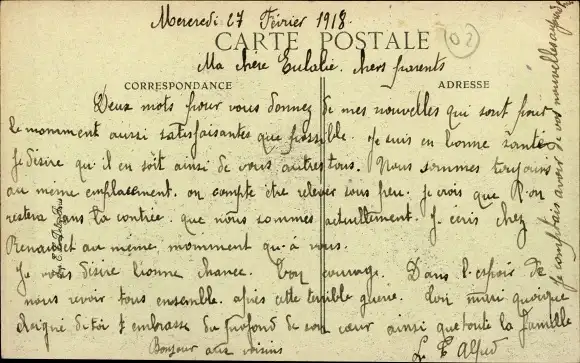 Mercredi 27 Février 1918.
CARTE POSTALE
02
Ma chère Eulalie. chers parents
CORRESPONDANCE
ADRESSE
Deux mots pour vous donnez de mes nouvelles qui sont pour
le momment aussi satisfaisantes que possible. Je suis en bonne santé
Je désire qu'il en soit ainsi de vous autres tous. Nous sommes toujours
au même emplacement. on compte être relever sous peu. je crois que l'on
restera dans la contrée. que nous sommes actuellement. Je ecris chez
Renaudet au même momment qu'à vous.
Je vous désire bonne chance. bon courage. Dans l'espoir de
nous revoir tous ensemble. après cette terrible guerre. Ton mari quoique
éloigné de toi t'embrasse du profond de son cœur ainsi que toute la famille
Bonjour aux voisins
L E Alfred
Je comptais avoir de vos nouvelles aujourd'hui